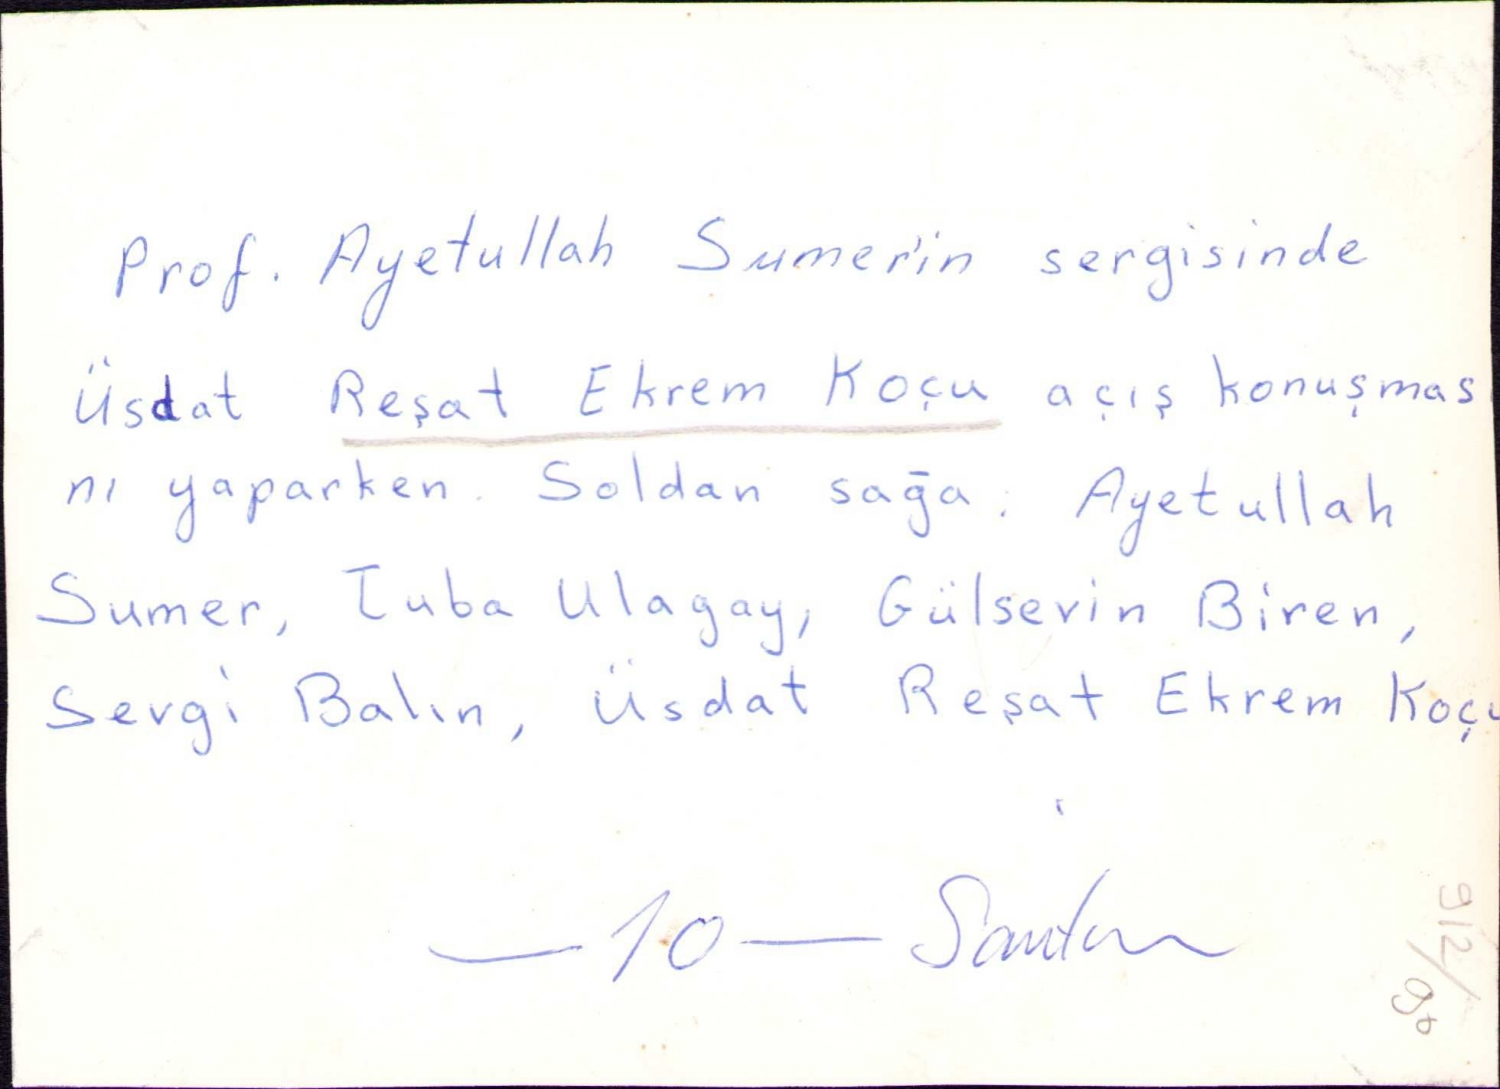 Prof. Ayetullah Sumer'in sergisinde
Üsdat Reşat Ekrem Koçu açış konuşmas
nı yaparken. Soldan sağa: Ayetullah
Sumer, Tuba Ulagay, Gülsevin Biren,
Sevgi Balın, Üsdat Reşat Ekrem Koçu
— 10 — Santim